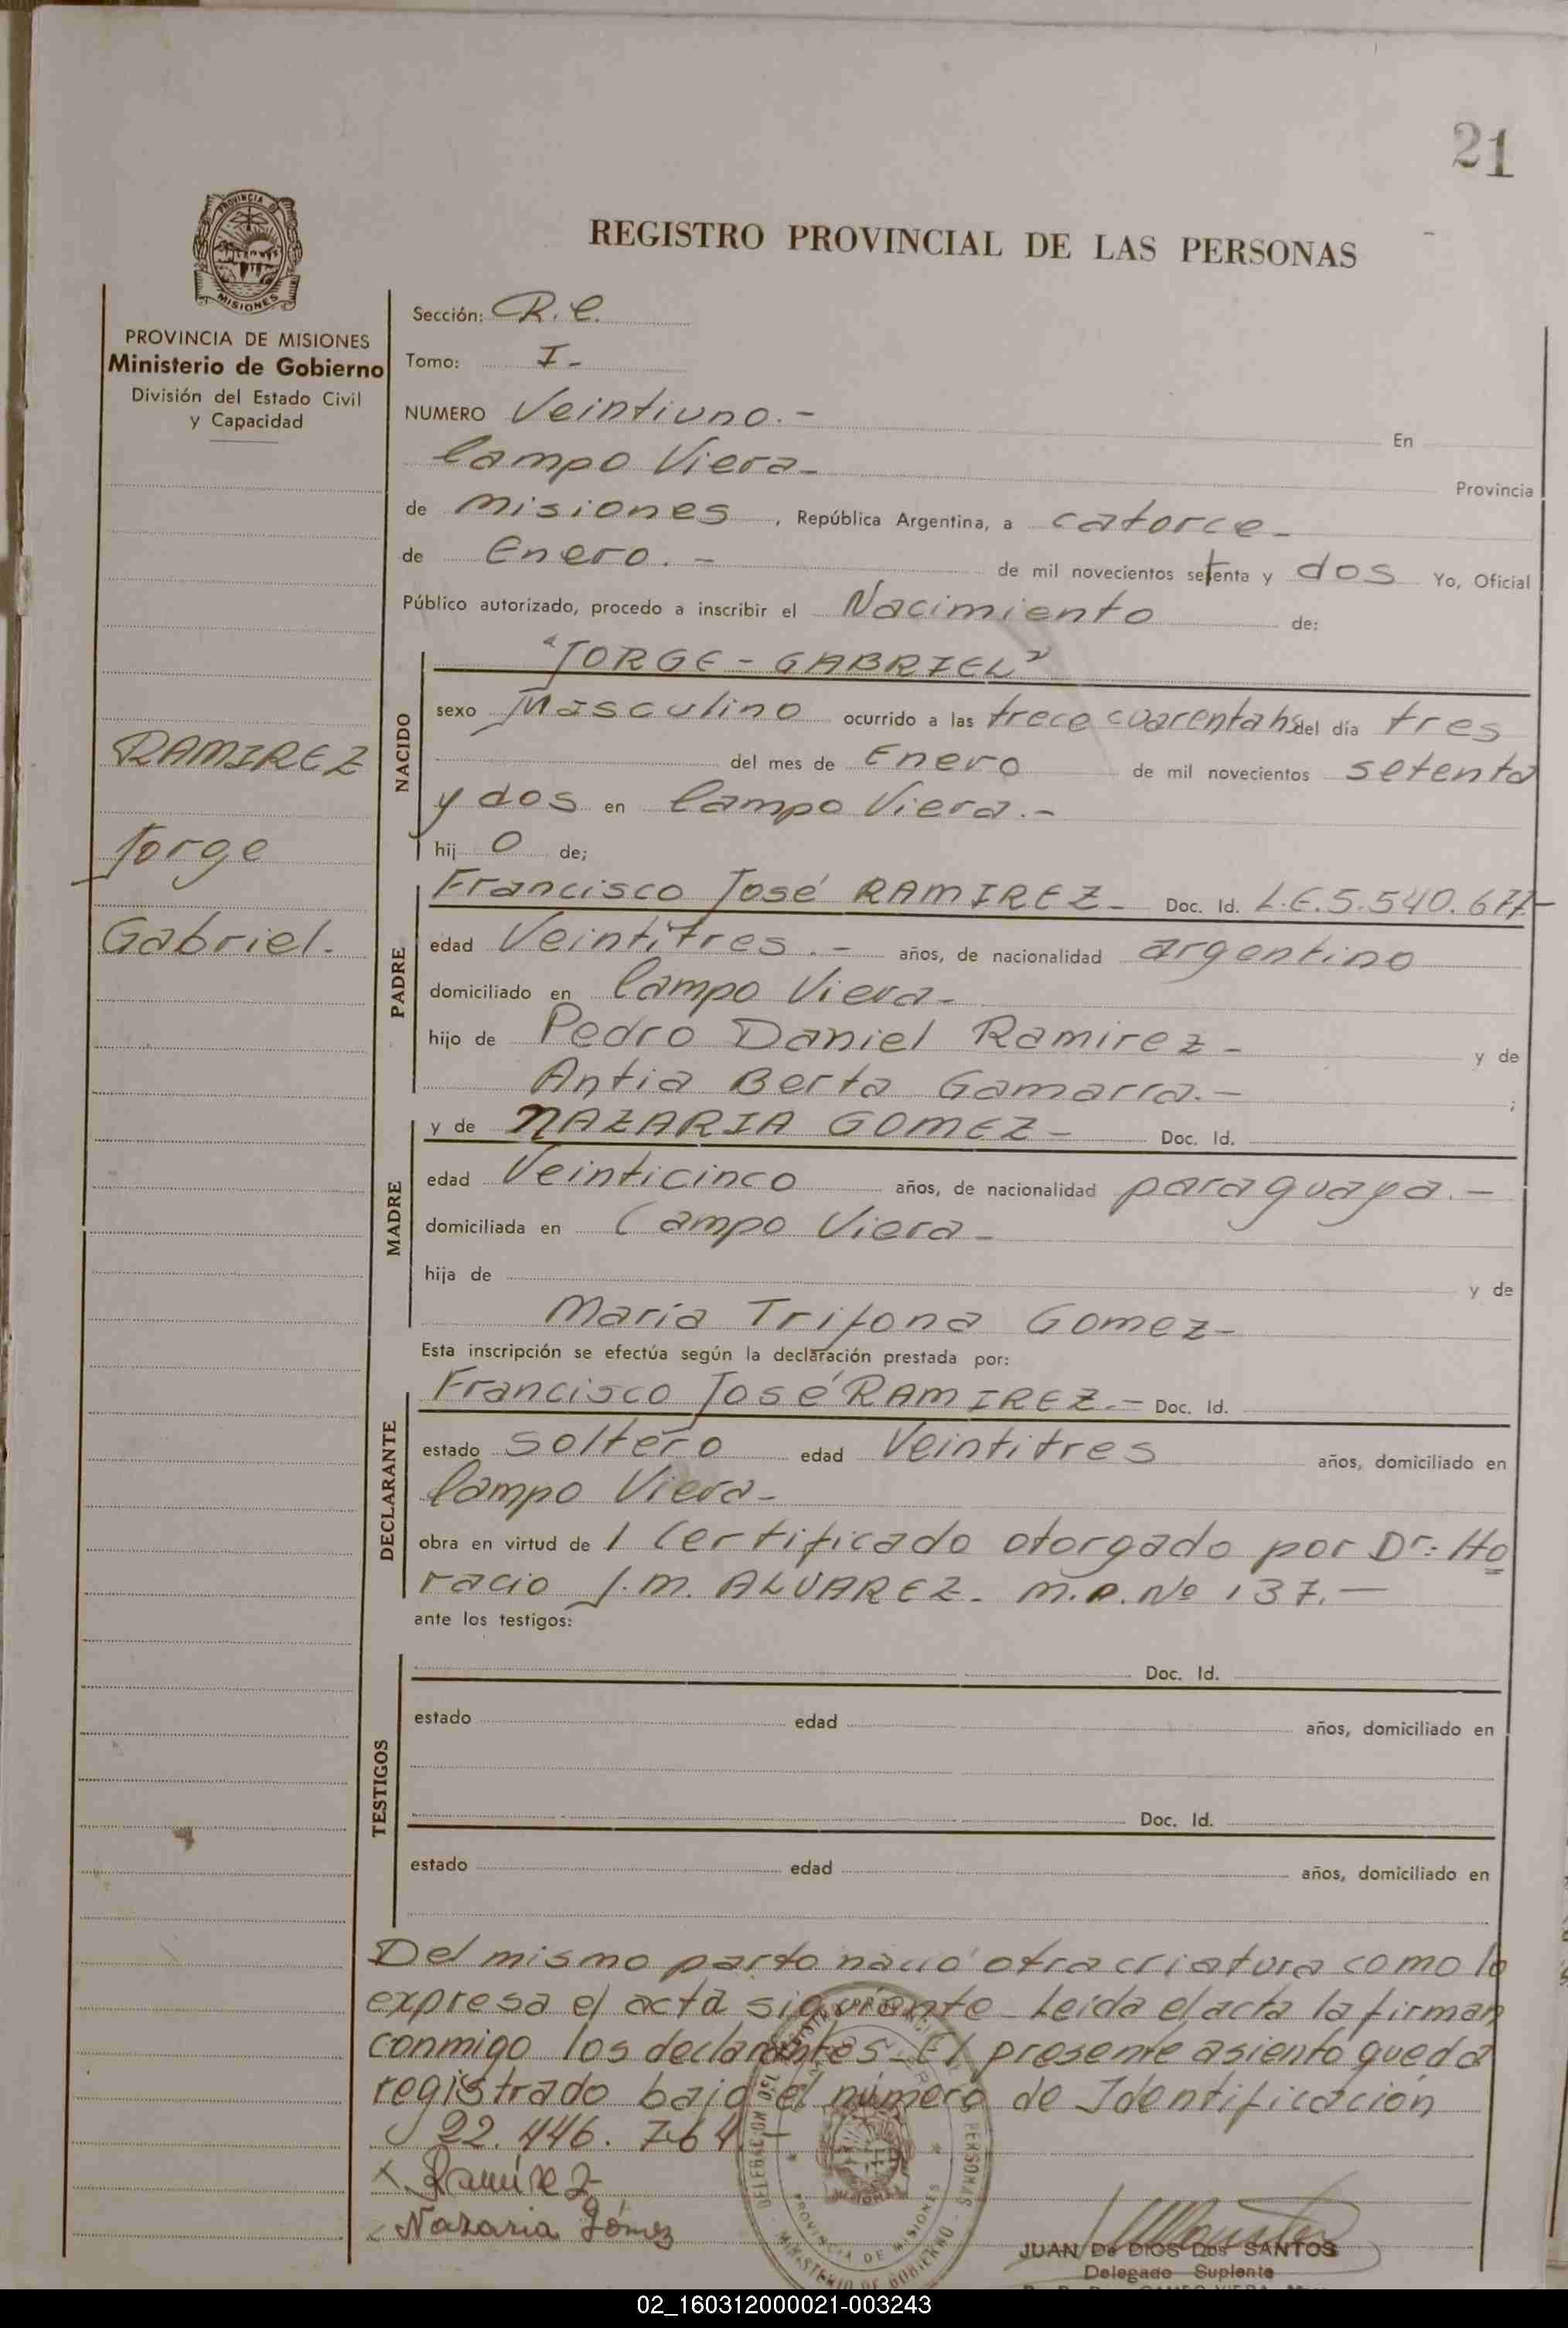 21
PROVINCIA DE
MISIONES
REGISTRO PROVINCIAL DE LAS PERSONAS
PROVINCIA DE MISIONES
Ministerio de Gobierno
División del Estado Civil
y Capacidad
RAMIREZ
Jorge
Gabriel.-
Sección: R.C.
Tomo: I-
NUMERO Veintiuno.- En
Campo Viera- Provincia
de Misiones, República Argentina, a catorce-
de Enero.- de mil novecientos setenta y dos Yo, Oficial
Público autorizado, procedo a inscribir el Nacimiento de:
"JORGE-GABRIEL"
NACIDO
sexo Masculino ocurrido a las trece cuarenta hs del día tres
del mes de Enero de mil novecientos setenta
y dos en Campo Viera.-
hij o de;
PADRE
Francisco José RAMIREZ- Doc. Id. L.E.5.540.677-
edad Veintitres.- años, de nacionalidad argentino
domiciliado en Campo Viera-
hijo de Pedro Daniel Ramirez- y de
Antia Berta Gamarra.- ;
MADRE
y de NAZARIA GOMEZ- Doc. Id.
edad Veinticinco años, de nacionalidad paraguaya.-
domiciliada en Campo Viera-
hija de y de
María Trifona Gomez-
Esta inscripción se efectúa según la declaración prestada por:
DECLARANTE
Francisco José RAMIREZ.- Doc. Id.
estado soltero edad Veintitres años, domiciliado en
Campo Viera-
obra en virtud de 1 Certificado otorgado por Dr: Ho
racio J.M. ALVAREZ- M.P.Nº 137.-
ante los testigos:
TESTIGOS
Doc. Id.
estado edad años, domiciliado en
Doc. Id.
estado edad años, domiciliado en
Del mismo parto nació otra criatura como lo
expresa el acta siguiente- Leida el acta la firman
conmigo los declarantes- El presente asiento queda
registrado bajo el número de Identificación
22.446.764.-
X Ramírez
Nazaria Gómez
PROVINCIA DE MISIONES
MINISTERIO DE GOBIERNO
PERSONAS
JUAN De DIOS Dos SANTOS
Delegado Suplente
02_160312000021-003243